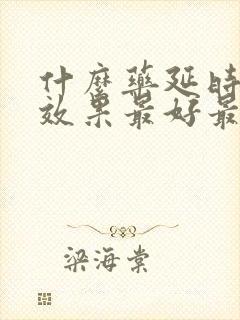 什麼藥延時
效果最好最
梁海棠